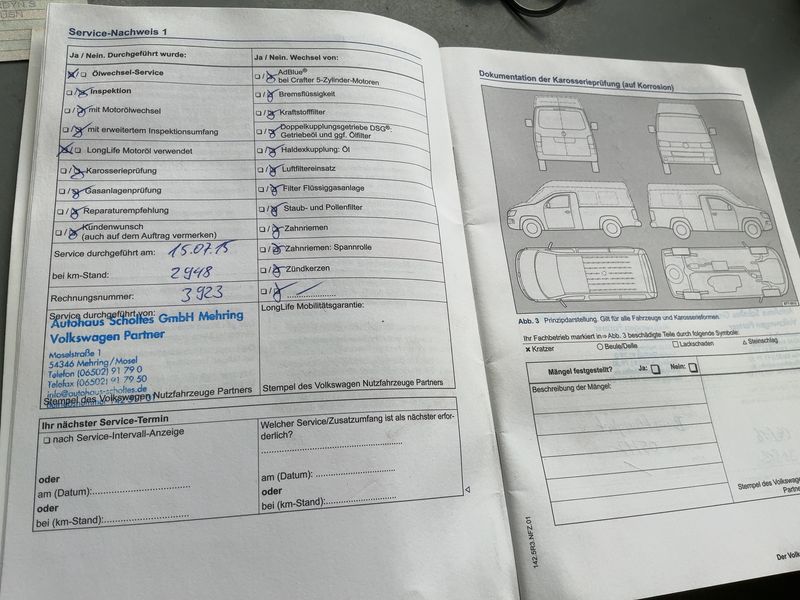 Service-Nachweis 1
Ja / Nein. Durchgeführt wurde:
Ölwechsel-Service
Inspektion
mit Motorölwechsel
mit erweitertem Inspektionsumfang
LongLife Motoröl verwendet
Karosserieprüfung
Gasanlagenprüfung
Reparaturempfehlung
Kundenwunsch
(auch auf dem Auftrag vermerken)
Service durchgeführt am: 15.07.15
bei km-Stand: 2948
Rechnungsnummer: 3923
Service durchgeführt von:
Autohaus Scholtes GmbH Mehring
Volkswagen Partner
Moselstraße 1
54346 Mehring/Mosel
Telefon (06502) 91 79 0
Telefax (06502) 91 79 50
info@autohaus-scholtes.de
Stempel des Volkswagen Nutzfahrzeuge Partners
Ja / Nein. Wechsel von:
AdBlue®
bei Crafter 5-Zylinder-Motoren
Bremsflüssigkeit
Kraftstofffilter
Doppelkupplungsgetriebe DSG®-
Getriebeöl und ggf. Ölfilter
Haldexkupplung: Öl
Luftfiltereinsatz
Filter Flüssiggasanlage
Staub- und Pollenfilter
Zahnriemen
Zahnriemen: Spannrolle
Zündkerzen
LongLife Mobilitätsgarantie:
Stempel des Volkswagen Nutzfahrzeuge Partners
Ihr nächster Service-Termin
nach Service-Intervall-Anzeige
oder
am (Datum):
oder
bei (km-Stand):
Welcher Service/Zusatzumfang ist als nächster erfor-
derlich?
am (Datum):
oder
bei (km-Stand):
Dokumentation der Karosserieprüfung (auf Korrosion)
Abb. 3 Prinzipdarstellung. Gilt für alle Fahrzeuge und Karosserieformen.
Ihr Fachbetrieb markiert in ⇒ Abb. 3 beschädigte Teile durch folgende Symbole:
× Kratzer ○ Beule/Delle □ Lackschaden △ Steinschlag
Mängel festgestellt? Ja: Nein:
Beschreibung der Mängel:
Stempel des Volkswagen
Partne
142.5R3.NFZ.01
Der Volk